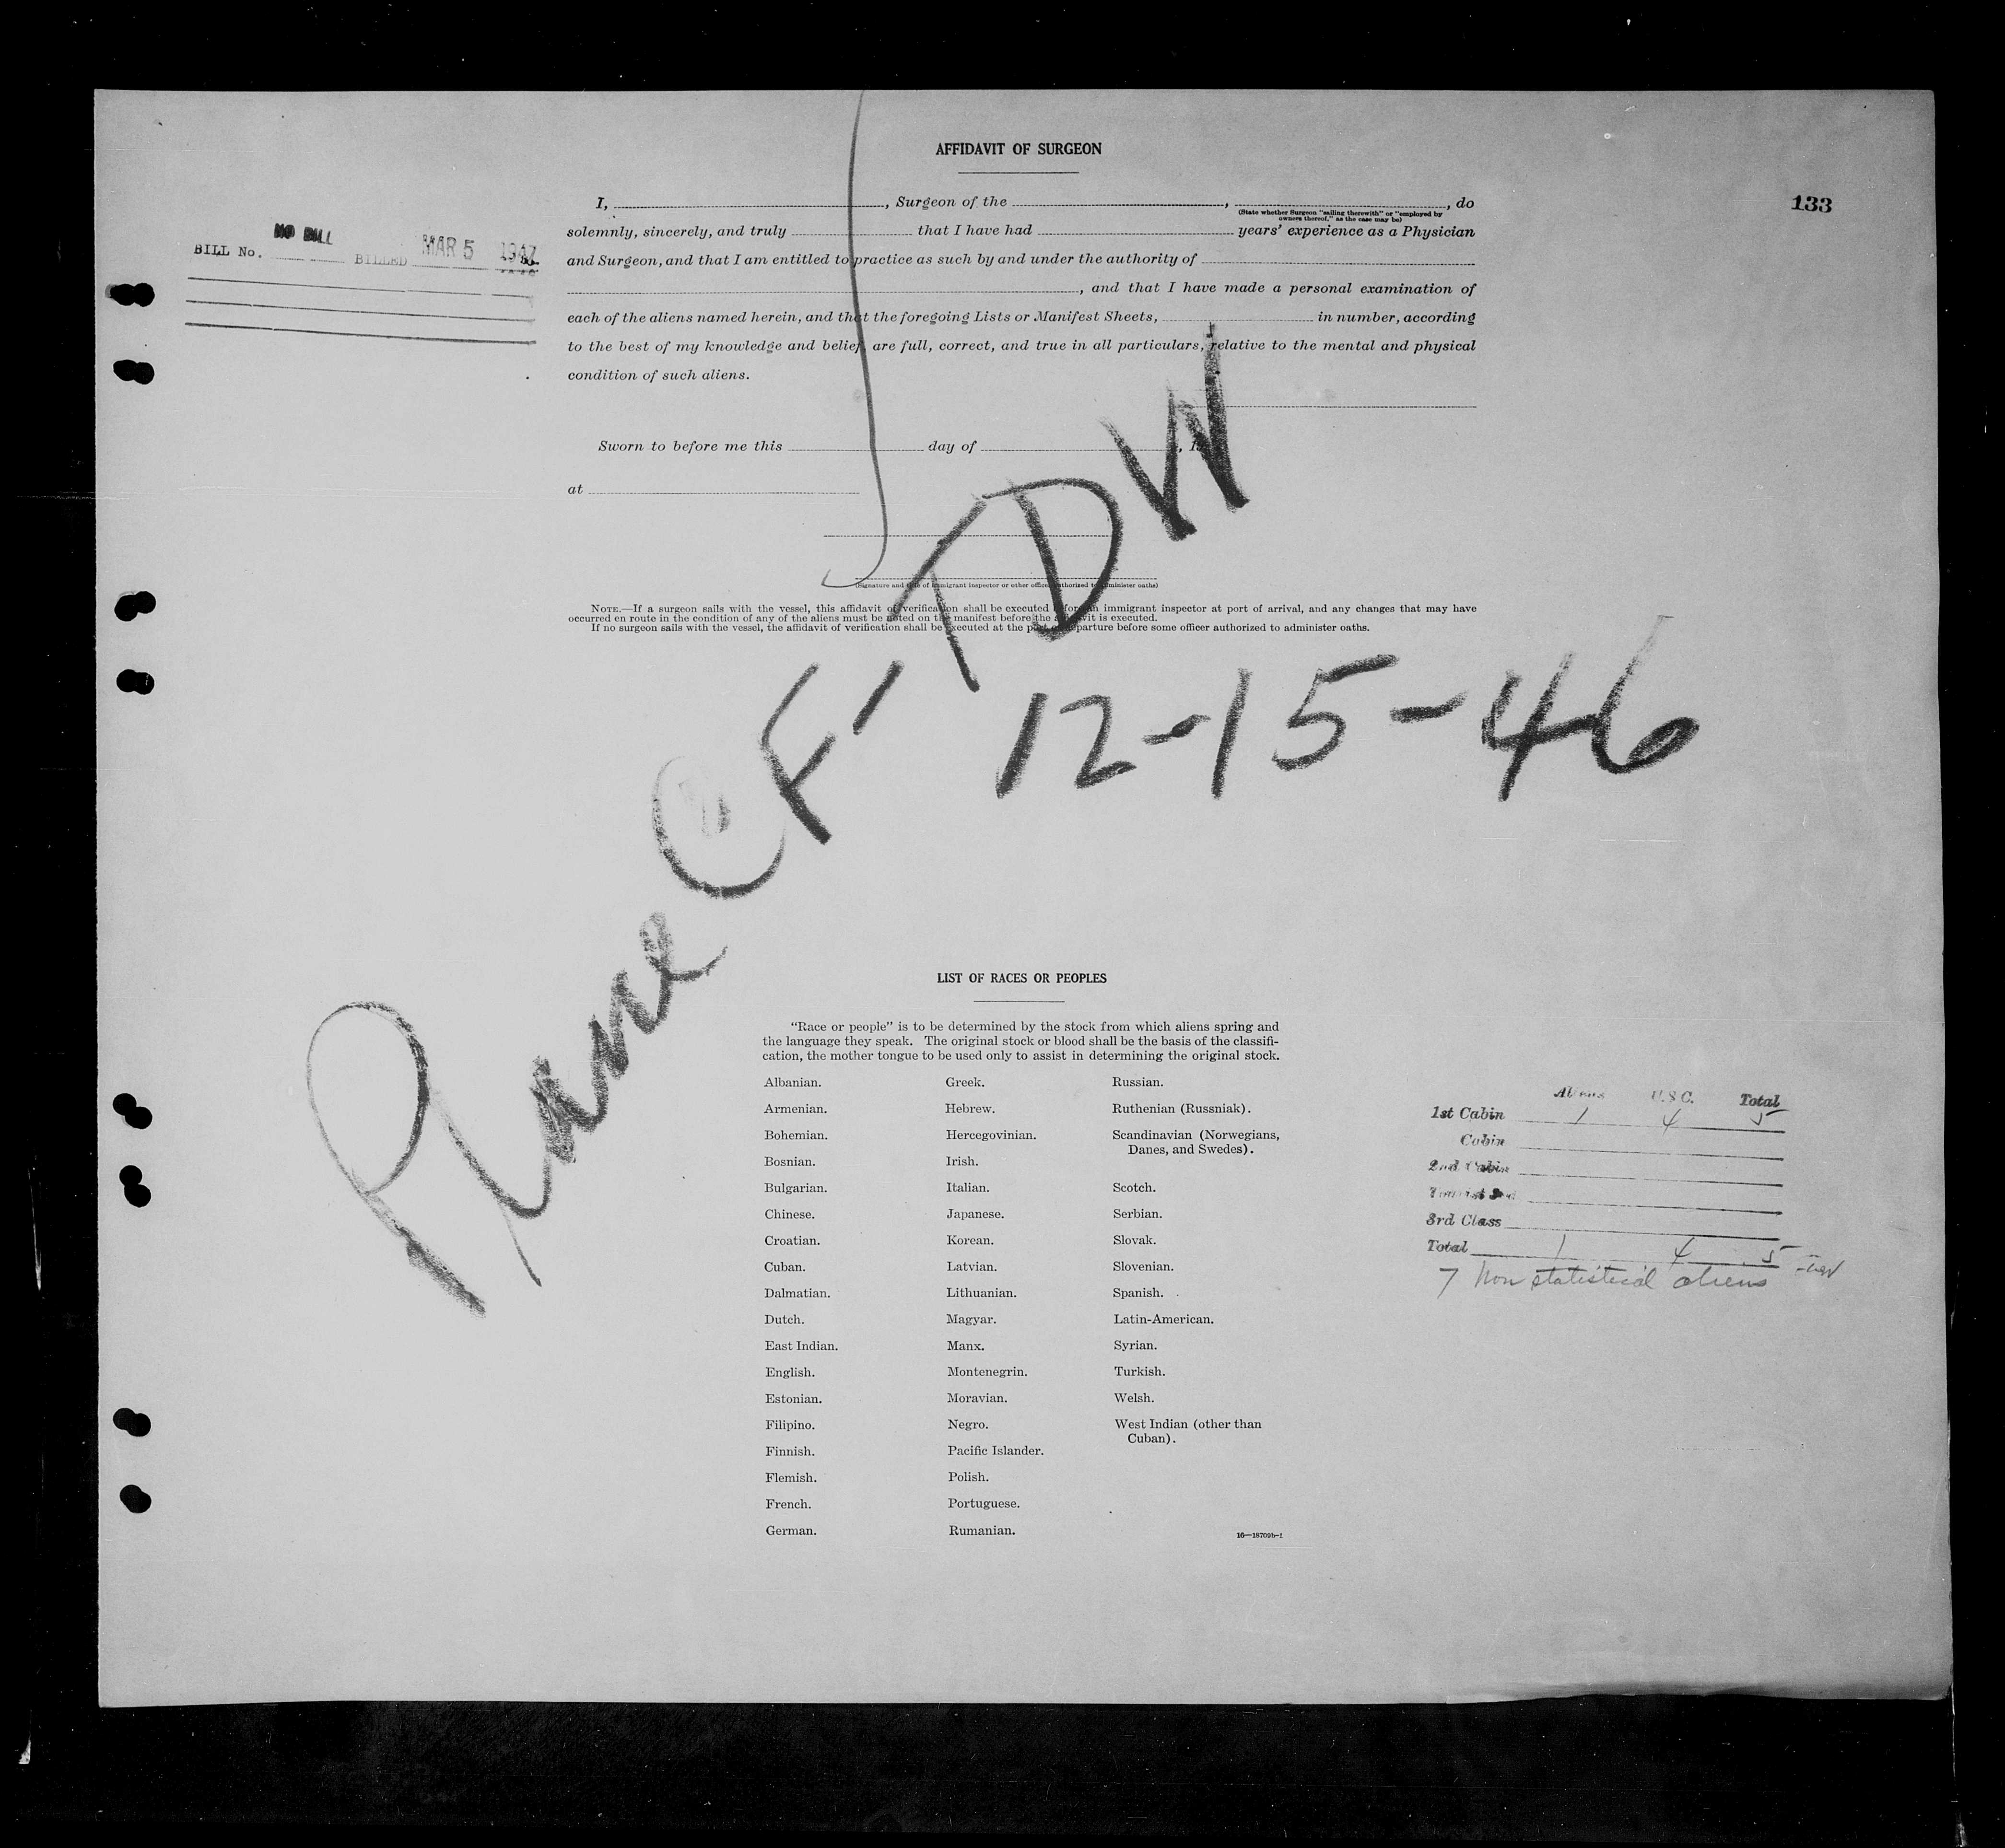 AFFIDAVIT OF SURGEON
133
I, , Surgeon of the , , do
(State whether Surgeon "sailing therewith" or "employed by
owners thereof," as the case may be)
solemnly, sincerely, and truly that I have had years' experience as a Physician
and Surgeon, and that I am entitled to practice as such by and under the authority of
, and that I have made a personal examination of
each of the aliens named herein, and that the foregoing Lists or Manifest Sheets, in number, according
to the best of my knowledge and belief, are full, correct, and true in all particulars, relative to the mental and physical
condition of such aliens.
NO BILL
BILL No. BILLED MAR 5 1947
Sworn to before me this day of , 19
at
(Signature and title of immigrant inspector or other officer authorized to administer oaths)
NOTE.—If a surgeon sails with the vessel, this affidavit of verification shall be executed before an immigrant inspector at port of arrival, and any changes that may have
occurred en route in the condition of any of the aliens must be noted on the manifest before the affidavit is executed.
If no surgeon sails with the vessel, the affidavit of verification shall be executed at the port of departure before some officer authorized to administer oaths.
Plane CF-TDW
12-15-46
LIST OF RACES OR PEOPLES
"Race or people" is to be determined by the stock from which aliens spring and
the language they speak. The original stock or blood shall be the basis of the classifi-
cation, the mother tongue to be used only to assist in determining the original stock.
Albanian. Greek. Russian.
Armenian. Hebrew. Ruthenian (Russniak).
Bohemian. Hercegovinian. Scandinavian (Norwegians,
Danes, and Swedes).
Bosnian. Irish.
Bulgarian. Italian. Scotch.
Chinese. Japanese. Serbian.
Croatian. Korean. Slovak.
Cuban. Latvian. Slovenian.
Dalmatian. Lithuanian. Spanish.
Dutch. Magyar. Latin-American.
East Indian. Manx. Syrian.
English. Montenegrin. Turkish.
Estonian. Moravian. Welsh.
Filipino. Negro. West Indian (other than
Cuban).
Finnish. Pacific Islander.
Flemish. Polish.
French. Portuguese.
German. Rumanian.
16—18709b-1
Aliens U.S.C. Total
1st Cabin 1 4 5
Cabin
2nd Cabin
Tourist 3rd
3rd Class
Total 1 4 5
7 Non statistical aliens